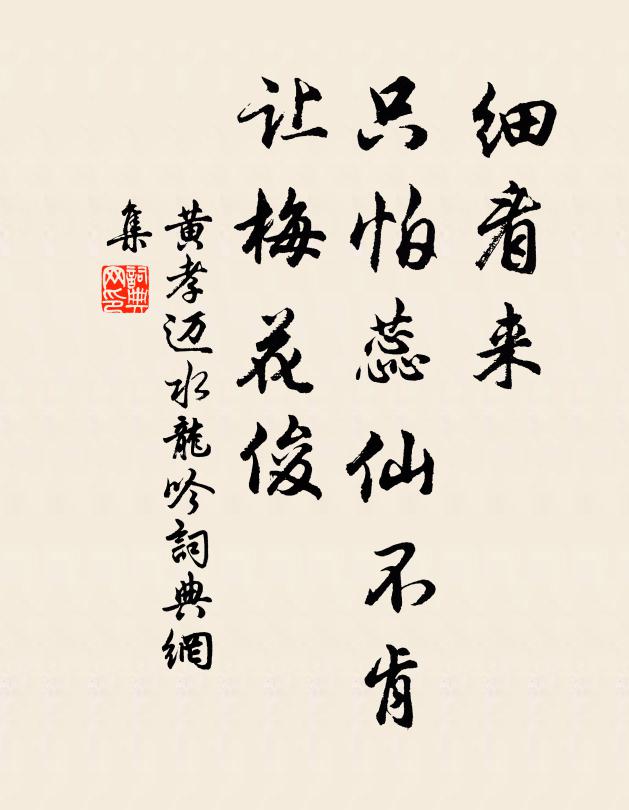 细看来
只怕蕊仙不肯
让梅花俊
黄孝迈水龍吟詞典網
集
詞典網印